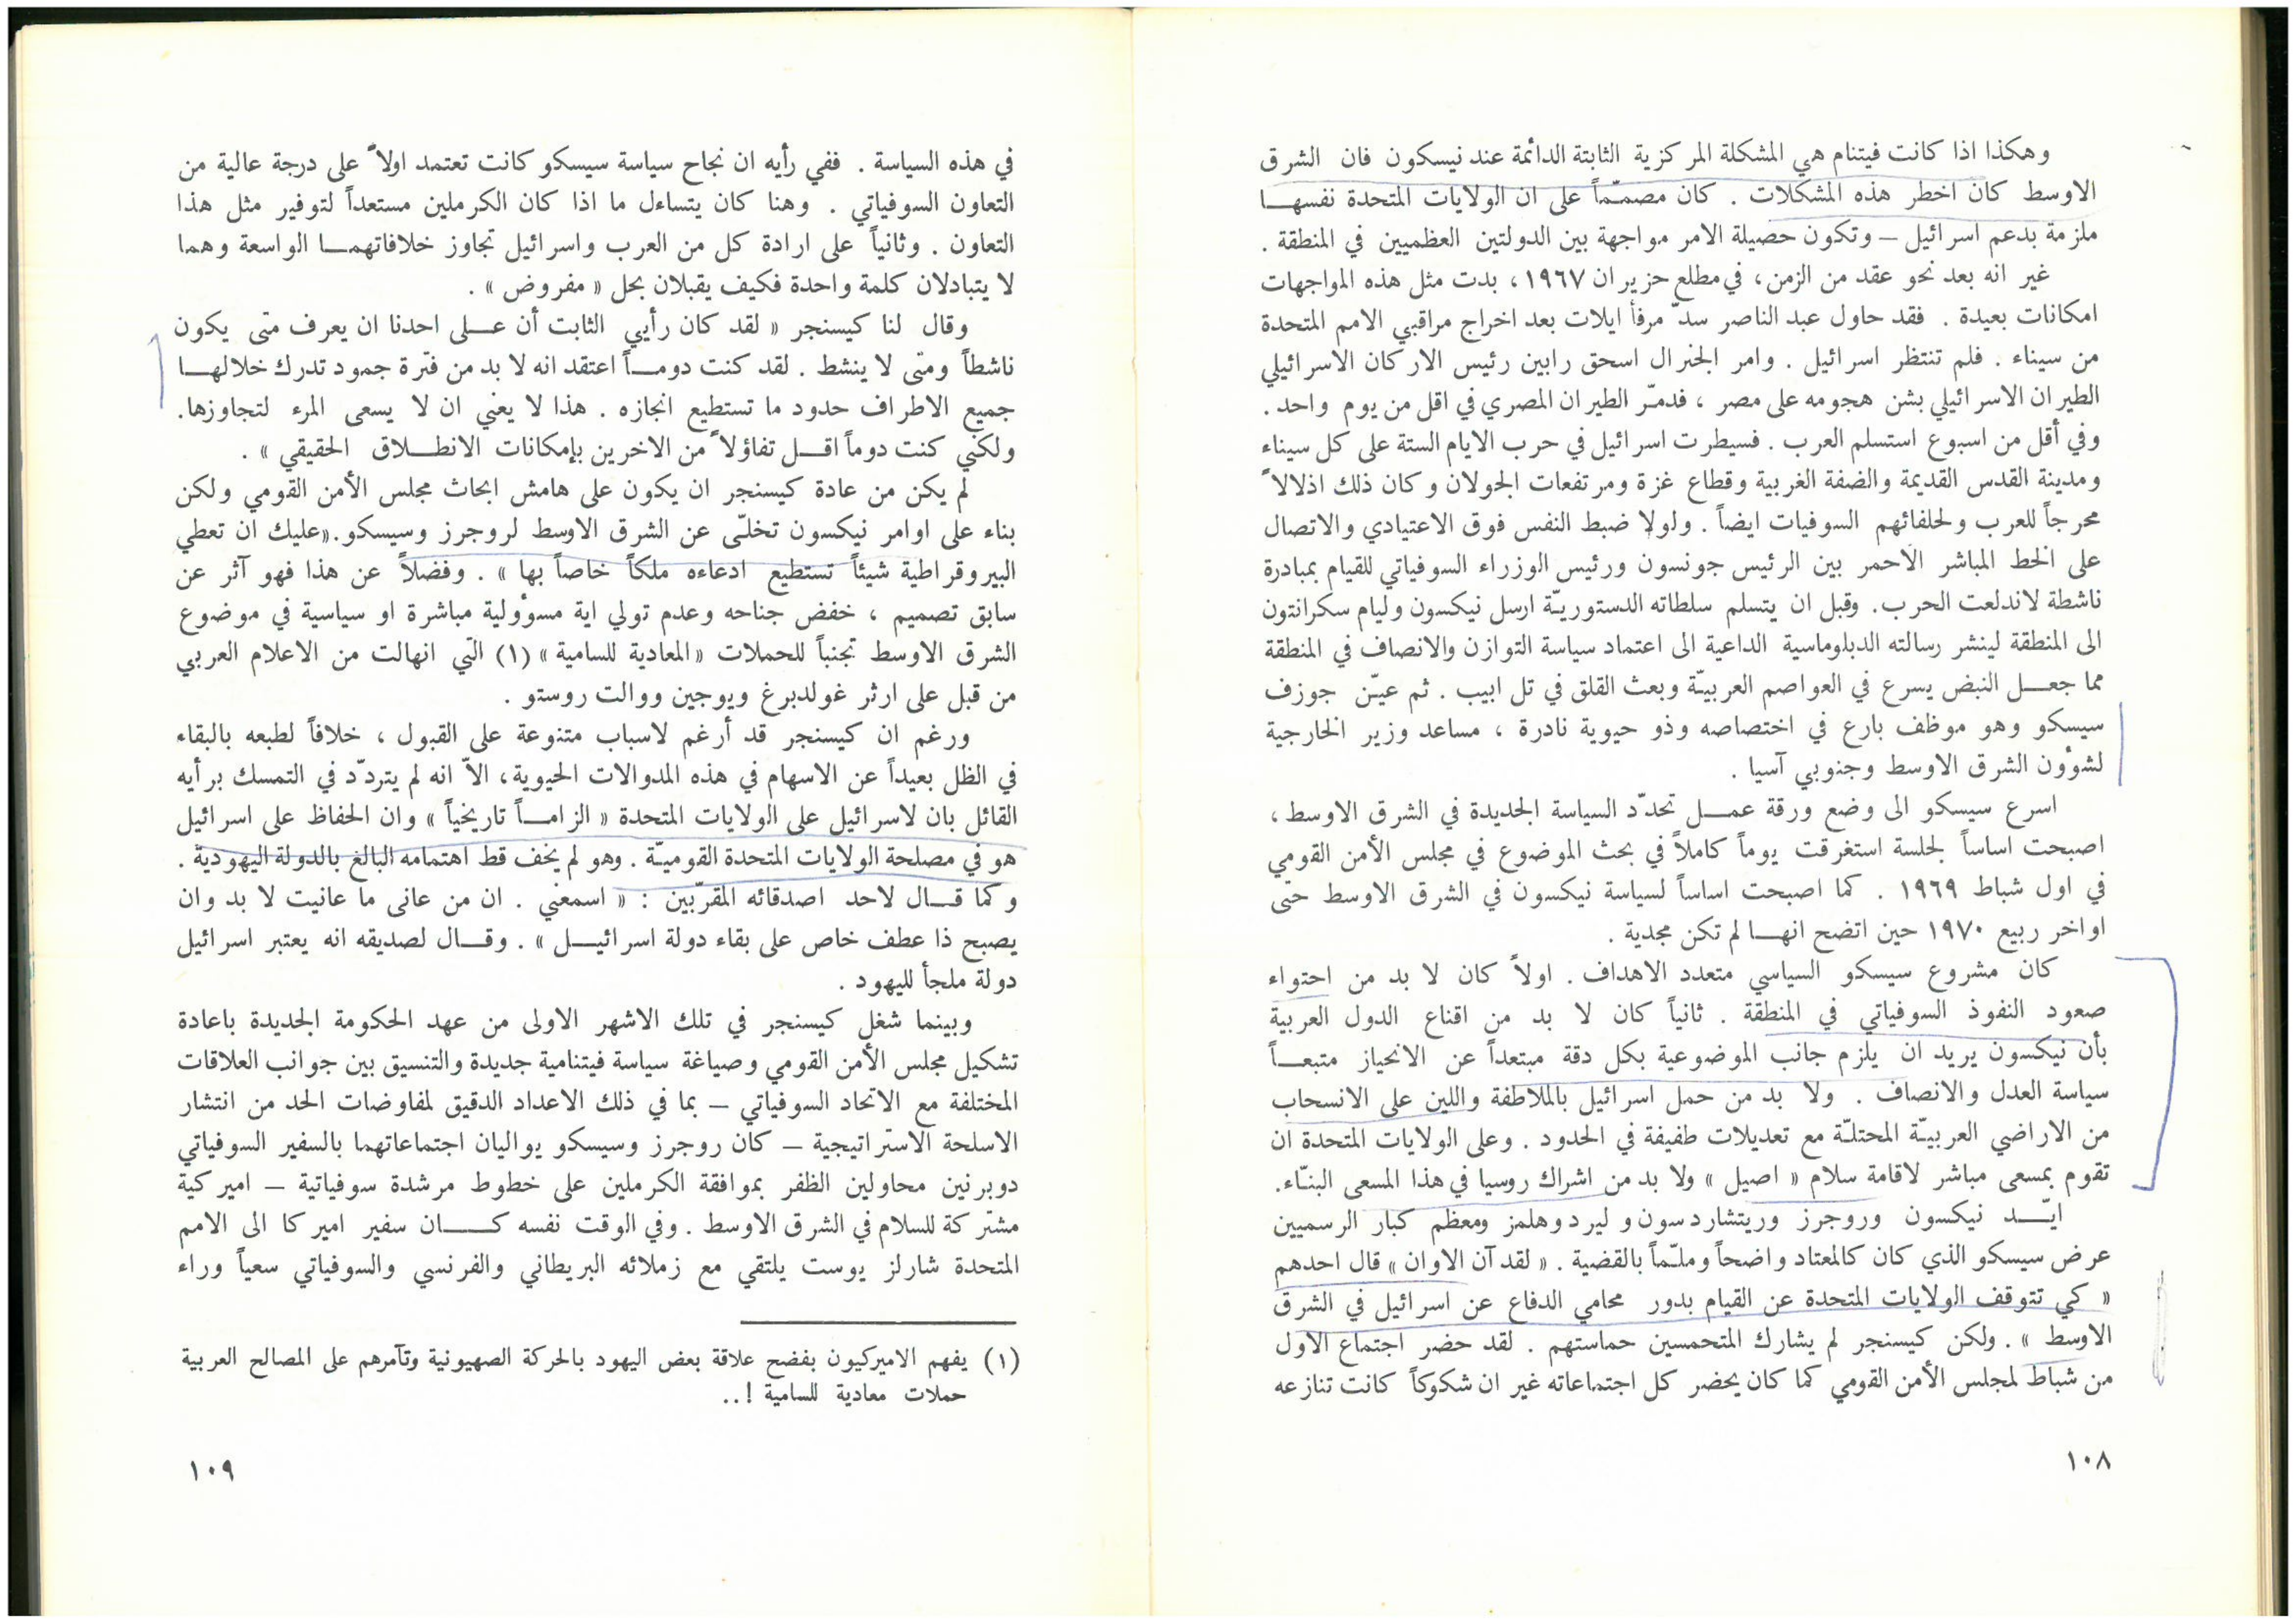 وهكذا اذا كانت فيتنام هي المشكلة المركزية الثابتة الدائمة عند نيسكون فان الشرق
الاوسط كان اخطر هذه المشكلات . كان مصمّماً على ان الولايات المتحدة نفسهـا
ملزمة بدعم اسرائيل – وتكون حصيلة الامر مواجهة بين الدولتين العظميين في المنطقة .
غير انه بعد نحو عقد من الزمن، في مطلع حزيران ١٩٦٧، بدت مثل هذه المواجهات
امكانات بعيدة . فقد حاول عبد الناصر سدّ مرفأ ايلات بعد اخراج مراقبي الامم المتحدة
من سيناء . فلم تنتظر اسرائيل . وامر الجنرال اسحق رابين رئيس الاركان الاسرائيلي
الطيران الاسرائيلي بشن هجومه على مصر ، فدمّر الطيران المصري في اقل من يوم واحد.
وفي أقل من اسبوع استسلم العرب . فسيطرت اسرائيل في حرب الايام الستة على كل سيناء
ومدينة القدس القديمة والضفة الغربية وقطاع غزة ومرتفعات الجولان وكان ذلك اذلالاً
محرجاً للعرب ولحلفائهم السوفيات ايضاً . ولولا ضبط النفس فوق الاعتيادي والاتصال
على الخط المباشر الاحمر بين الرئيس جونسون ورئيس الوزراء السوفياتي للقيام بمبادرة
ناشطة لاندلعت الحرب. وقبل ان يتسلم سلطاته الدستوريّة ارسل نيكسون وليام سكرانتون
الى المنطقة لينشر رسالته الدبلوماسية الداعية الى اعتماد سياسة التوازن والانصاف في المنطقة
مما جعـل النبض يسرع في العواصم العربيّة وبعث القلق في تل ابيب . ثم عيّن جوزف
سيسكو وهو موظف بارع في اختصاصه وذو حيوية نادرة ، مساعد وزير الخارجية
لشؤون الشرق الاوسط وجنوبي آسيا .
اسرع سيسكو الى وضع ورقة عمـل تحدّد السياسة الجديدة في الشرق الاوسط ،
اصبحت اساساً لجلسة استغرقت يوماً كاملاً في بحث الموضوع في مجلس الأمن القومي
في اول شباط ١٩٦٩ . كما اصبحت اساساً لسياسة نيكسون في الشرق الاوسط حتى
اواخر ربيع ١٩٧٠ حين اتضح انهـا لم تكن مجدية .
كان مشروع سيسكو السياسي متعدد الاهداف . اولاً كان لا بد من احتواء
صعود النفوذ السوفياتي في المنطقة . ثانياً كان لا بد من اقناع الدول العربية
بأن نيكسون يريد ان يلزم جانب الموضوعية بكل دقة مبتعداً عن الانحياز متبعـاً
سياسة العدل والانصاف . ولا بد من حمل اسرائيل بالملاطفة واللين على الانسحاب
من الاراضي العربيّة المحتلّة مع تعديلات طفيفة في الحدود . وعلى الولايات المتحدة ان
تقوم بمسعى مباشر لاقامة سلام « اصيل » ولا بد من اشراك روسيا في هذا المسعى البنّاء.
ايّـد نيكسون وروجرز وريتشاردسون و ليرد وهلمز ومعظم كبار الرسميين
عرض سيسكو الذي كان كالمعتاد واضحاً وملمّاً بالقضية . « لقد آن الاوان » قال احدهم
« كي تتوقف الولايات المتحدة عن القيام بدور محامي الدفاع عن اسرائيل في الشرق
الاوسط » . ولكن كيسنجر لم يشارك المتحمسين حماستهم . لقد حضر اجتماع الاول
من شباط لمجلس الأمن القومي كما كان يحضر كل اجتماعاته غير ان شكوكاً كانت تنازعه
١٠٨
في هذه السياسة . ففي رأيه ان نجاح سياسة سيسكو كانت تعتمد اولاً على درجة عالية من
التعاون السوفياتي . وهنا كان يتساءل ما اذا كان الكرملين مستعداً لتوفير مثل هذا
التعاون . وثانياً على ارادة كل من العرب واسرائيل تجاوز خلافاتهمـا الواسعة وهما
لا يتبادلان كلمة واحدة فكيف يقبلان بحل « مفروض » .
وقال لنا كيسنجر « لقد كان رأيي الثابت أن عـلى احدنا ان يعرف متى يكون
ناشطاً ومتى لا ينشط . لقد كنت دومـاً اعتقد انه لا بد من فترة جمود تدرك خلالهـا
جميع الاطراف حدود ما تستطيع انجازه . هذا لا يعني ان لا يسعى المرء لتجاوزها.
ولكني كنت دوماً اقـل تفاؤلاً من الاخرين بإمكانات الانطـلاق الحقيقي » .
لم يكن من عادة كيسنجر ان يكون على هامش ابحاث مجلس الأمن القومي ولكن
بناء على اوامر نيكسون تخلّى عن الشرق الاوسط لروجرز وسيسكو.«عليك ان تعطي
البيروقراطية شيئاً تستطيع ادعاءه ملكاً خاصاً بها » . وفضلاً عن هذا فهو آثر عن
سابق تصميم ، خفض جناحه وعدم تولي اية مسؤولية مباشرة او سياسية في موضوع
الشرق الاوسط تجنباً للحملات «المعادية للسامية » (١) التي انهالت من الاعلام العربي
من قبل على ارثر غولدبرغ ويوجين ووالت روستو .
ورغم ان كيسنجر قد أرغم لاسباب متنوعة على القبول ، خلافاً لطبعه بالبقاء
في الظل بعيداً عن الاسهام في هذه المداولات الحيوية، الاّ انه لم يتردّد في التمسك برأيه
القائل بان لاسرائيل على الولايات المتحدة « الزامـاً تاريخياً » وان الحفاظ على اسرائيل
هو في مصلحة الولايات المتحدة القوميّة . وهو لم يخف قط اهتمامه البالغ بالدولة اليهودية .
وكما قـال لاحد اصدقائه المقرّبين : « اسمعني . ان من عانى ما عانيت لا بد وان
يصبح ذا عطف خاص على بقاء دولة اسرائيـل » . وقـال لصديقه انه يعتبر اسرائيل
دولة ملجأ لليهود .
وبينما شغل كيسنجر في تلك الاشهر الاولى من عهد الحكومة الجديدة باعادة
تشكيل مجلس الأمن القومي وصياغة سياسة فيتنامية جديدة والتنسيق بين جوانب العلاقات
المختلفة مع الاتحاد السوفياتي – بما في ذلك الاعداد الدقيق لمفاوضات الحد من انتشار
الاسلحة الاستراتيجية – كان روجرز وسيسكو يواليان اجتماعاتهما بالسفير السوفياتي
دوبرنين محاولين الظفر بموافقة الكرملين على خطوط مرشدة سوفياتية – اميركية
مشتركة للسلام في الشرق الاوسط . وفي الوقت نفسه كـان سفير اميركا الى الامم
المتحدة شارلز يوست يلتقي مع زملائه البريطاني والفرنسي والسوفياتي سعياً وراء
(١) يفهم الاميركيون بفضح علاقة بعض اليهود بالحركة الصهيونية وتآمرهم على المصالح العربية
حملات معادية للسامية !..
١٠٩